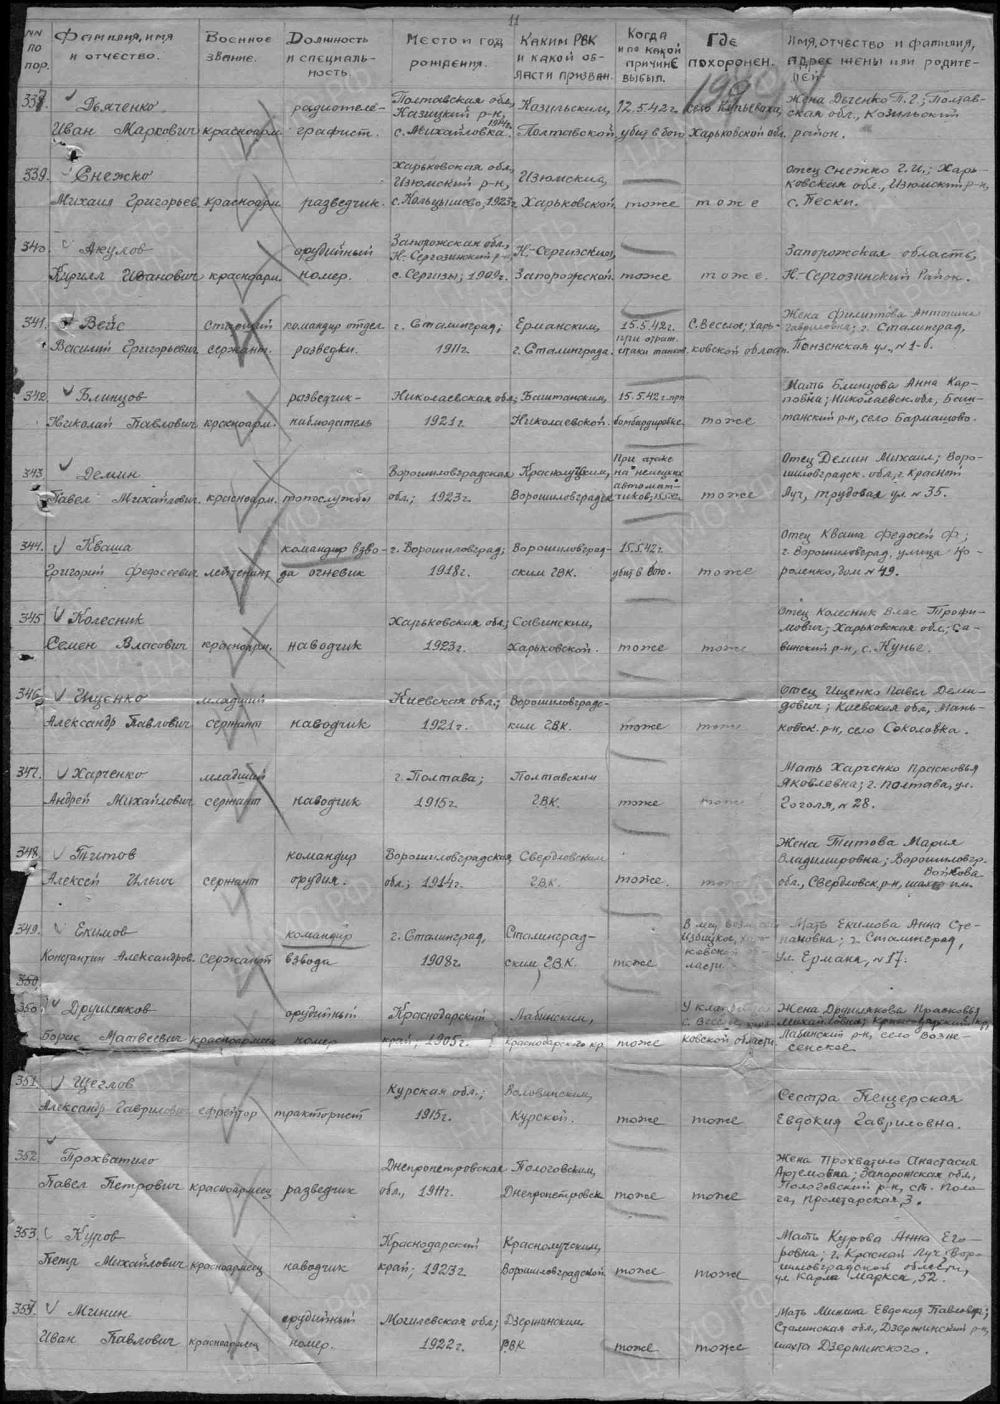 11
NN по пор. Фамилия, имя и отчество. Военное звание. Должность и специальность. Место и год рождения. Каким РВК и какой области призван. Когда и по какой причине выбыл. Где похоронен. Имя, отчество и фамилия, адрес жены или родителей
199
337. Дьяченко Иван Маркович красноарм. радиотелеграфист. Полтавская обл., Казицкий р-н, с. Михайловка. 1914г. Казильским, Полтавской 12.5.42г. убит в бою Харьковской обл. Жена Дьченко П.Г.; Полтавская обл., Козильский район.
339. Снежко Михаил Григорьев. красноарм. разведчик. Харьковская обл., Изюмский р-н, 1923г. Изюмским, Харьковской тоже тоже Отец Снежко Г.И.; Харьковская обл., Изюмский р-н, с. Пески.
340. Акулов Кирилл Иванович красноарм. орудийный номер. Запорожская обл., Н-Сергозинский р-н, с. Сергозы; 1909г. Н-Сергозским, Запорожской тоже тоже. Запорожская область, Н-Сергозинский район.
341. Вейс Василий Григорьевич старший сержант. командир отдел. разведки. г. Сталинград; 1911г. Ерманским, г. Сталинграда. 15.5.42г. при отраж. атаки танков. с. Веселое; Харьковской област. Жена Филиппова Антонина Гавриловна; г. Сталинград, Пензенская ул., N 1-б.
342. Блинцов Николай Павлович красноарм. разведчик-наблюдатель Николаевская обл; 1921г. Баштанским, Николаевской. 15.5.42г. при бомбардировке. тоже Мать Блинцова Анна Карповна; Николаевск. обл., Баштанский р-н, село Бармашово.
343 Демин Павел Михайлович красноарм. топослужбы Ворошиловградская обл; 1923г. Краснолуцким, Ворошиловградск При атаке на немецких автоматчиков; тоже Отец Демин Михаил; Ворошиловградск. обл., г. Красный Луч, трудовая ул N 35.
344. Кваша Григорий Федосеевич лейтенант командир взвода огневик г. Ворошиловград; 1918г. Ворошиловградским ГВК. 15.5.42г. убит в бою. тоже Отец Кваша Федосей Ф; г. Ворошиловград, улица Короленко, дом N 49.
345 Колесник Семен Власович красноарм. наводчик Харьковская обл; 1923г. Савинским, Харьковской. тоже тоже Отец Колесник Влас Трофимович; Харьковская обл; Савинский р-н, с. Кунье.
346 Ищенко Александр Павлович младший сержант наводчик Киевская обл.; 1921г. Ворошиловградским ГВК. тоже тоже Отец Ищенко Павел Демидович; Киевская обл, Маньковск. р-н, село Соколовка.
347. Харченко Андрей Михайлович младший сержант наводчик г. Полтава; 1915г. Полтавским ГВК. тоже тоже Мать Харченко Прасковья Яковлевна; г. Полтава, ул. Гоголя, N 28.
348 Титов Алексей Ильич сержант командир орудия. Ворошиловградская обл; 1914г. Свердловским ГВК. тоже. тоже Жена Титова Мария Владимировна; Ворошиловгр. обл., Свердловск. р-н, шахт им. Войкова
349. Екимов Константин Александров. сержант командир взвода г. Сталинград, 1908г Сталинградским ГВК. тоже Избицкое, Харьковской области. Мать Екимова Анна Степановна; г. Сталинград, ул. Ермана, N 17.
350
350. Друшляков Борис Матвеевич красноармеец орудийный номер Краснодарский край; 1905г. Лабинским, Краснодарского кр тоже У кладбища с. Веселое, Харьковской области. Жена Друшлякова Прасковья Михайловна; Краснодарский кр, Лабинский р-н, село Вознесенское
351 Щеглов Александр Гаврилович ефрейтор тракторист Курская обл.; 1915г. Воловинским, Курской. тоже тоже Сестра Пещерская Евдокия Гавриловна.
352 Прохватило Павел Петрович красноармеец разведчик Днепропетровская обл., 1911г. Пологовским, Днепропетровск тоже тоже Жена Прохватило Анастасия Артемовна; Запорожская обл, Пологовский р-н, ст. Полога, Пролетарская, 3.
353 Куров Петр Михайлович красноармеец наводчик Краснодарский край; 1923г Краснолучским, Ворошиловградской тоже тоже Мать Курова Анна Егоровна; г. Красной Луч, Ворошиловградской области, ул. Карла Маркса, 52.
354 Минин Иван Павлович красноармеец орудийный номер. Могилевская обл; 1922г. Дзержинским РВК тоже тоже Мать Минина Евдокия Павловна; Сталинская обл., Дзержинский р-н, шахта Дзержинского.